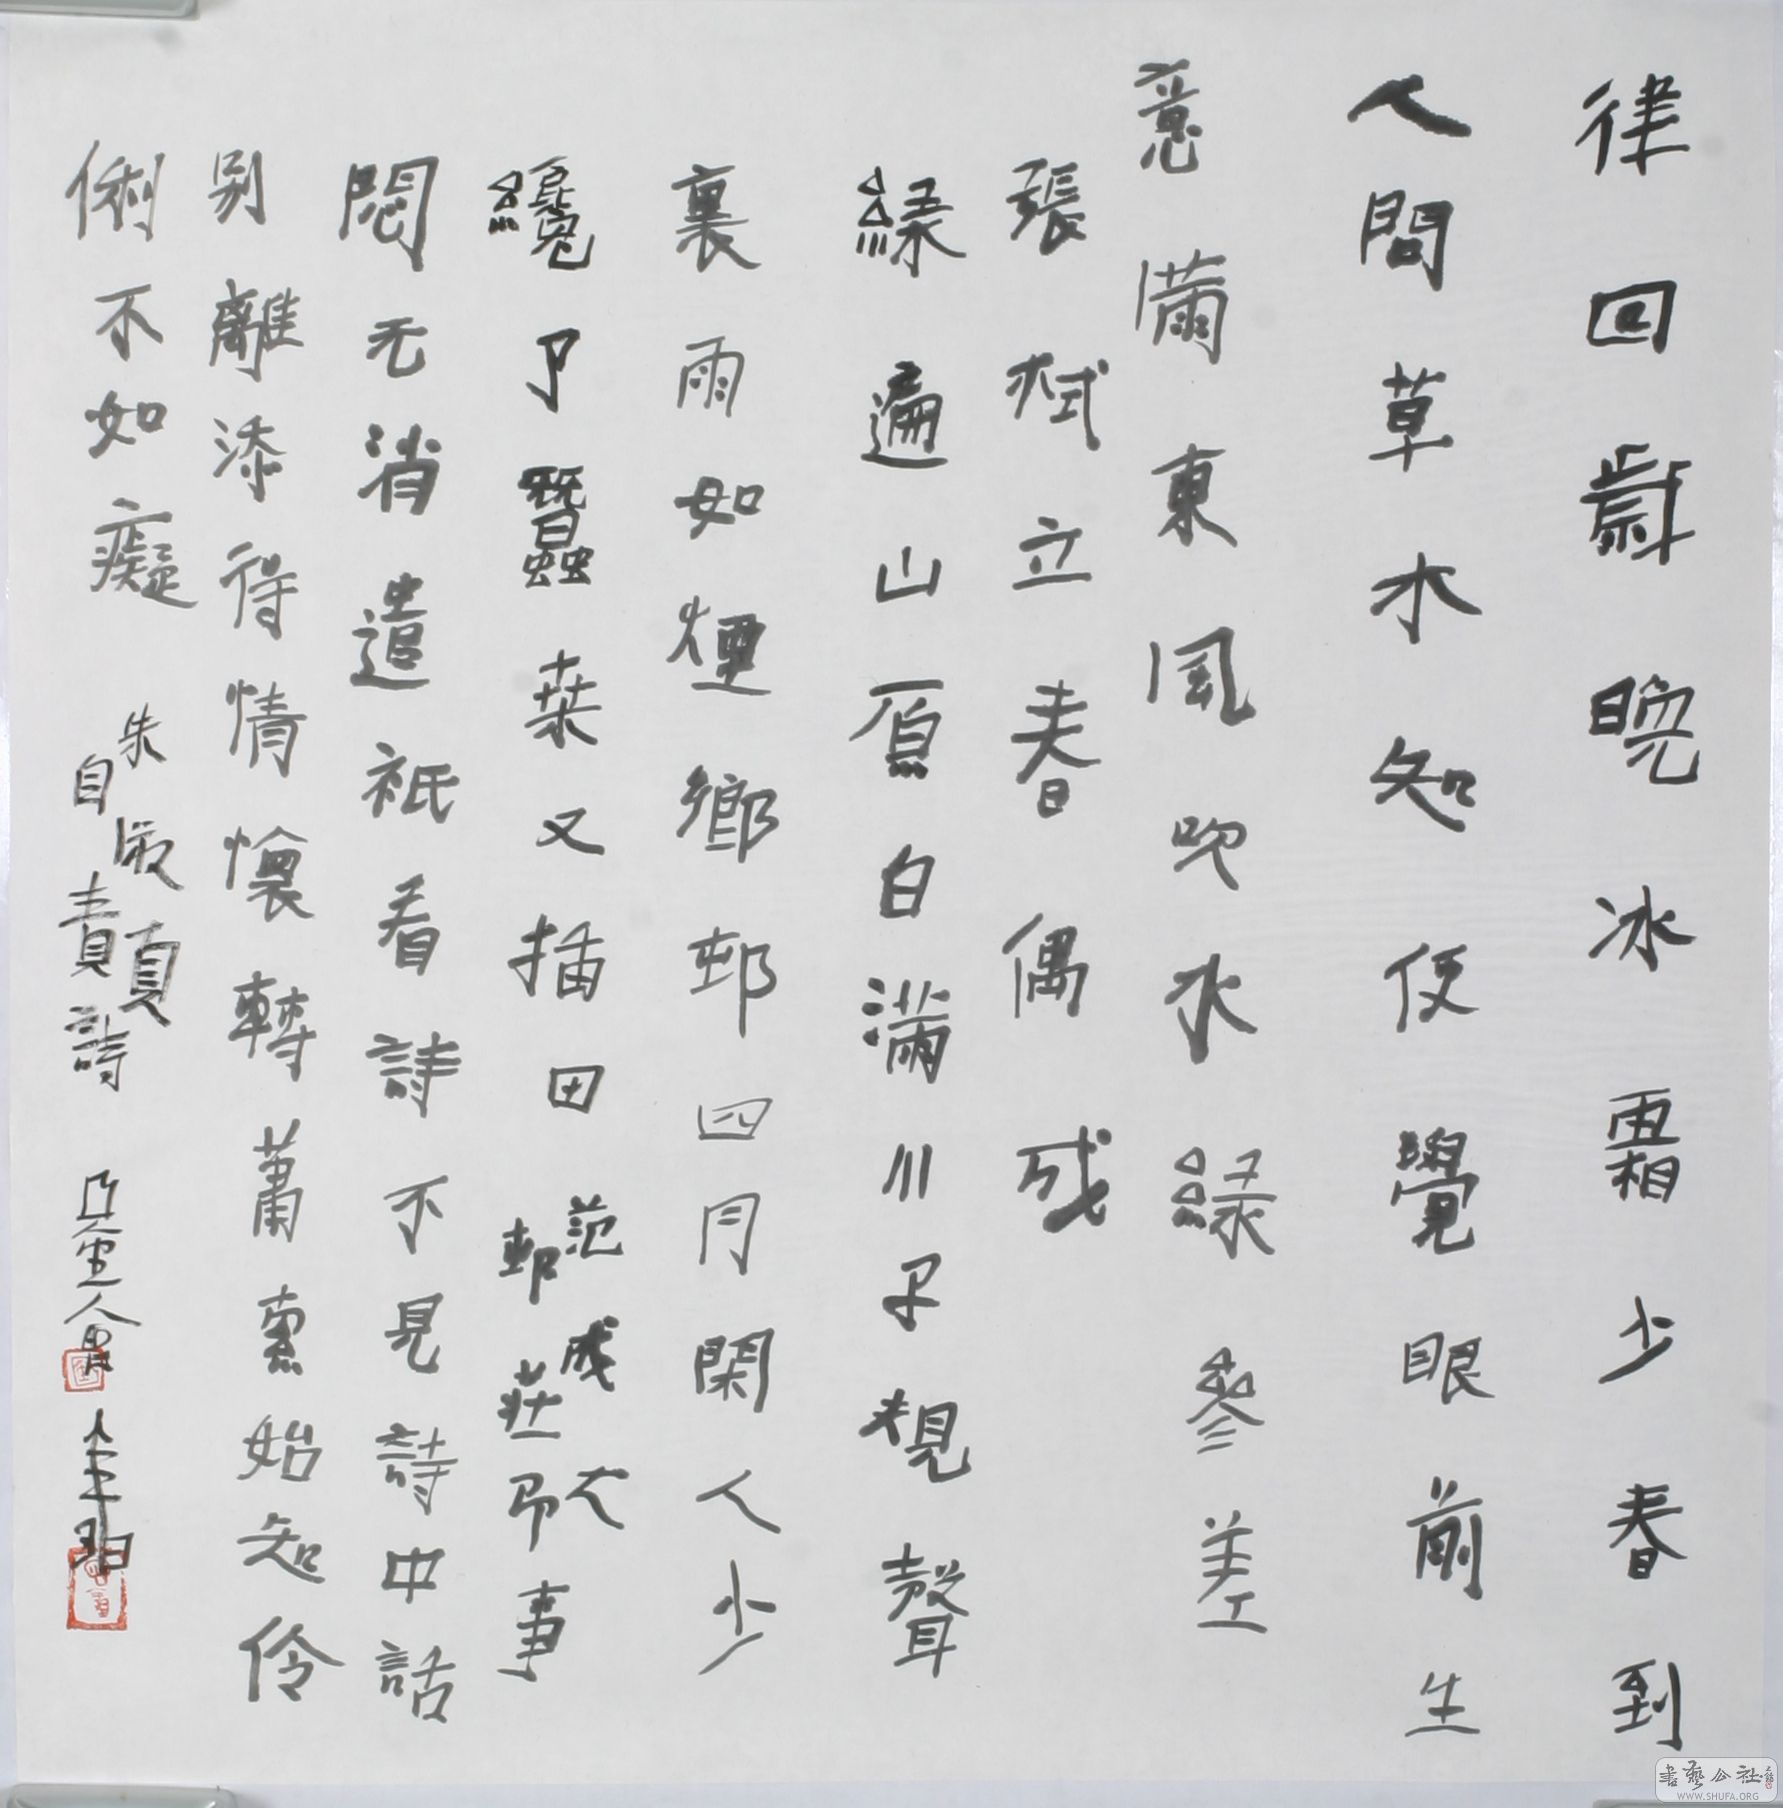 律回歲晚冰霜少春到
人間草木知便覺眼前生
意滿東風吹水綠參差
張栻立春偶成
綠遍山原白滿川子規聲
裏雨如煙鄉邨四月閑人少
纔了蠶桒又插田
范成大
邨莊即事
悶无消遣祇看詩不見詩中話
別離添得情懷轉蕭索始知伶
俐不如癡
朱淑真
自責詩
書藝公社
WWW.SHUFA.ORG